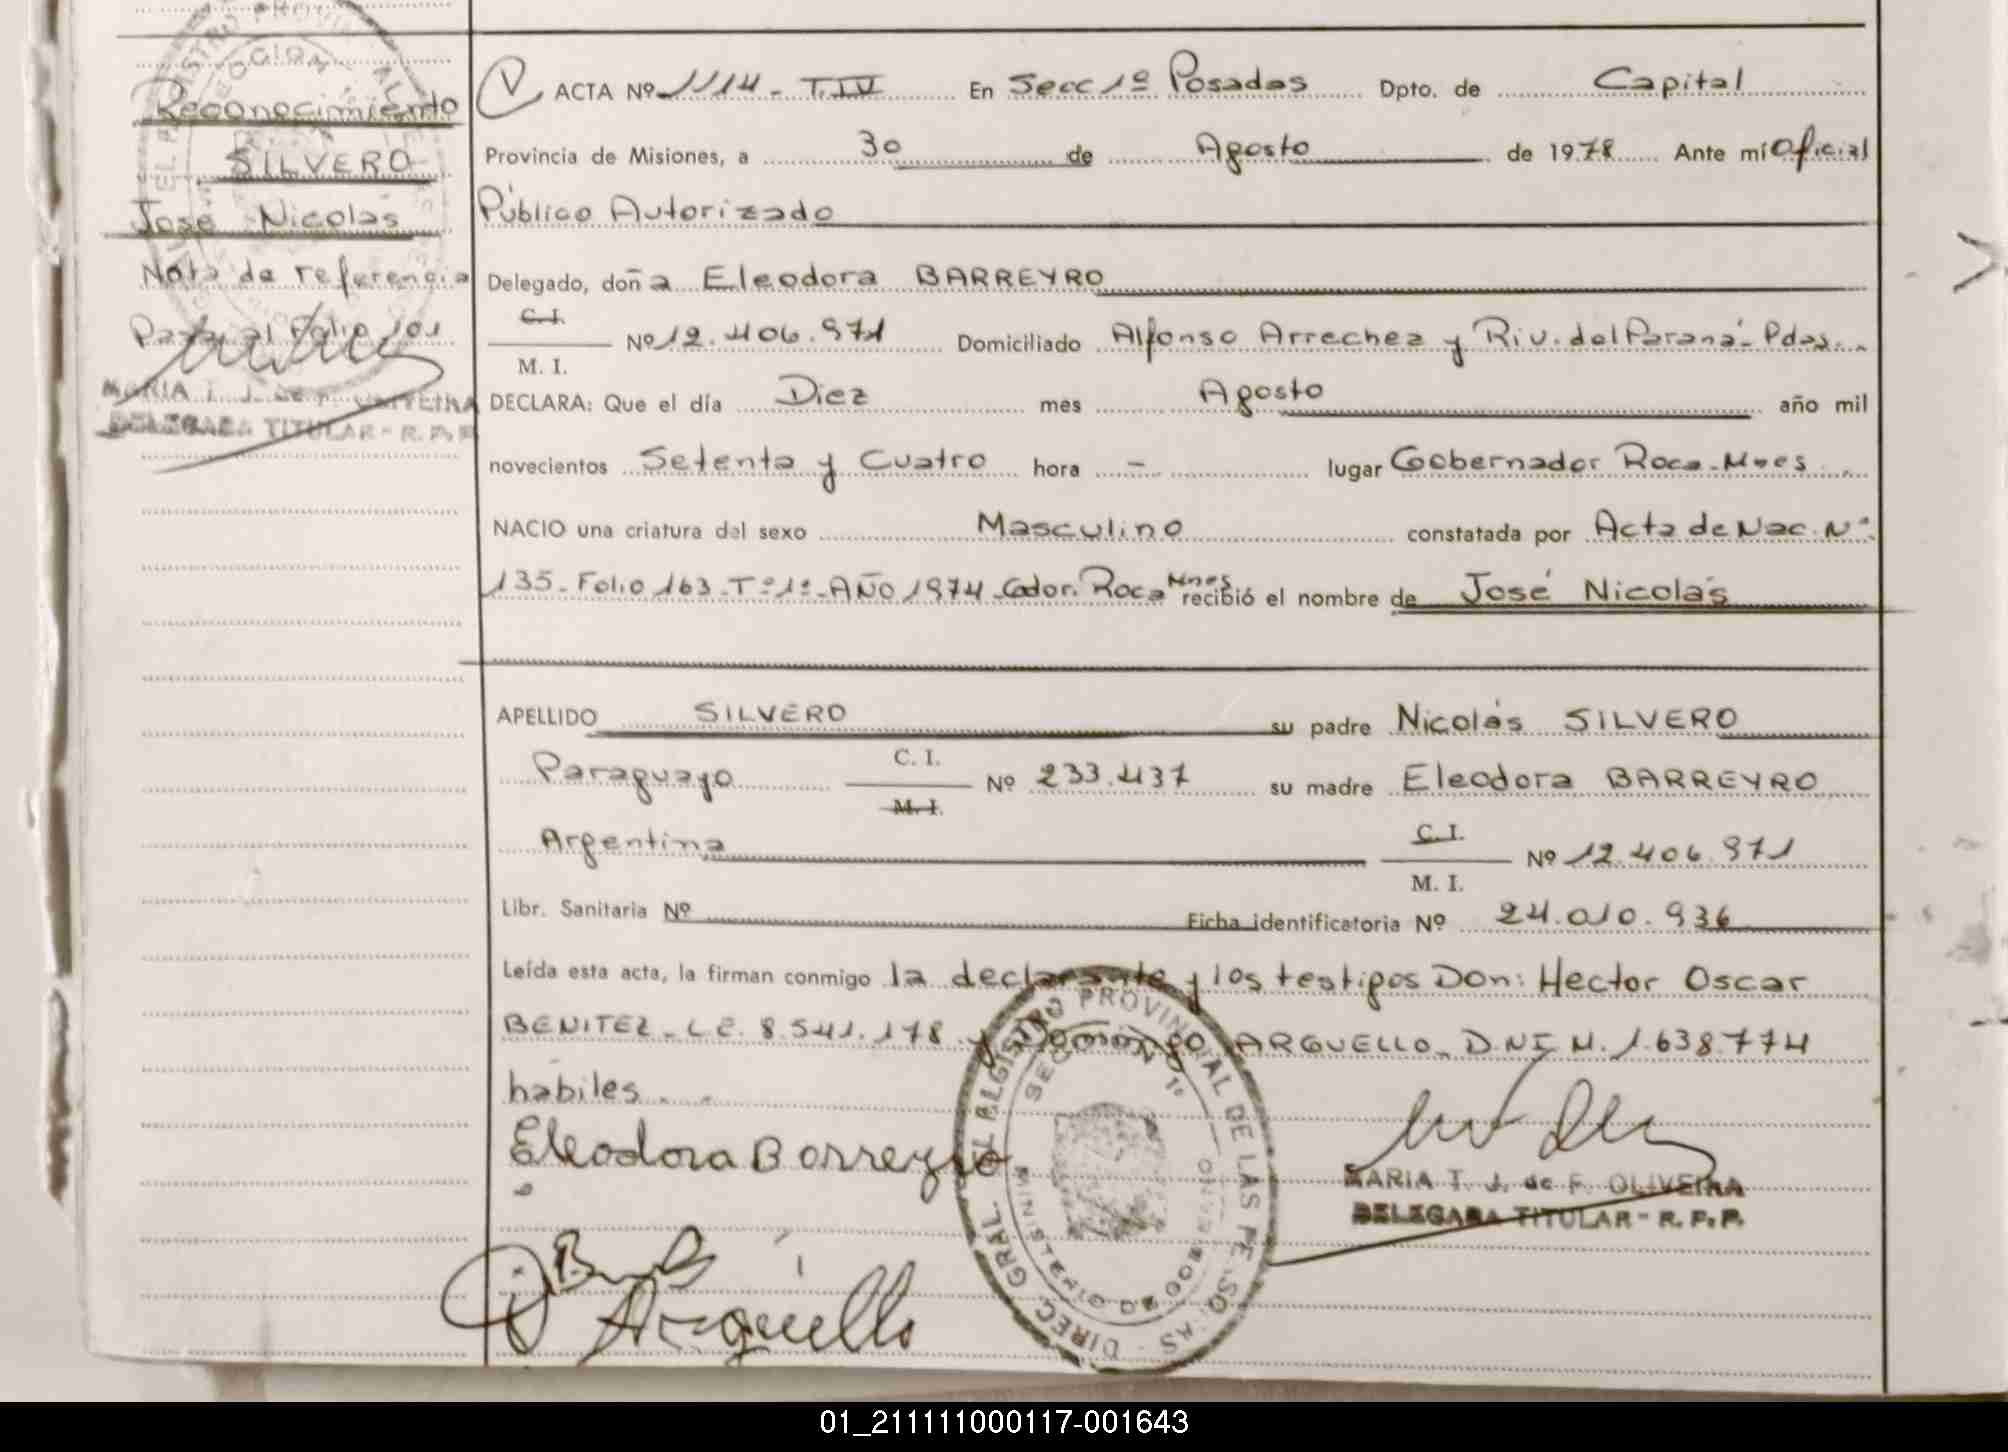 Reconocimiento
SILVERO
José Nicolás
Nota de referencia
Pasa al Folio 101
MARIA T. J. de F. OLIVEIRA
DELEGADA TITULAR - R. P. P.
ACTA Nº 1114 - T.IV En Secc 1º Posadas Dpto. de Capital
Provincia de Misiones, a 30 de Agosto de 1978 Ante mí Oficial
Público Autorizado
Delegado, doña Eleodora BARREYRO
C. I.
M. I.
Nº 12.406.971 Domiciliado Alfonso Arrechea y Riv. del Paraná - Pdas.
DECLARA: Que el día Diez mes Agosto año mil
novecientos Setenta y Cuatro hora - lugar Gobernador Roca - Mnes
NACIO una criatura del sexo Masculino constatada por Acta de Nac. Nº
135 - Folio 163 - Tº 1º - AÑO 1974 - Gdor. Roca Mnes recibió el nombre de José Nicolás
APELLIDO SILVERO su padre Nicolás SILVERO
Paraguayo C. I. M. I. Nº 233.437 su madre Eleodora BARREYRO
Argentina C. I. M. I. Nº 12.406.971
Libr. Sanitaria Nº Ficha identificatoria Nº 24.010.936
Leída esta acta, la firman conmigo la declarante y los testigos Don: Hector Oscar
BENITEZ - L.E. 8.541.178 y Domingo ARGUELLO - D.N.I. M. 1.638.774
habiles
Eleodora Barreyro
Arguello
MARIA T. J. de F. OLIVEIRA
DELEGADA TITULAR - R. P. P.
DIREC. GRAL. DEL REGISTRO PROVINCIAL DE LAS PERSONAS
SECCION 1º
MINISTERIO DE GOBIERNO
01_211111000117-001643